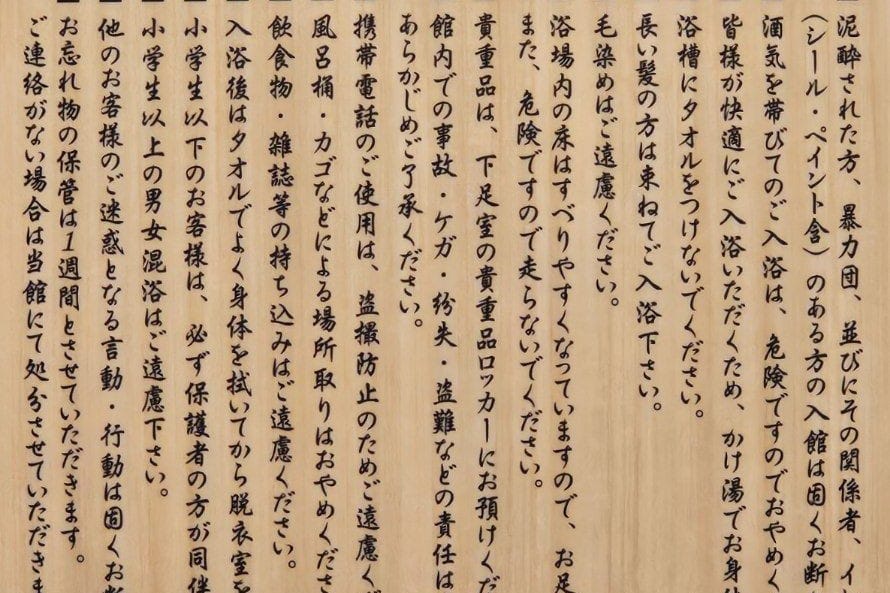 泥酔された方、暴力団、並びにその関係者、イレ
(シール・ペイント含)のある方の入館は固くお断
酒気を帯びてのご入浴は、危険ですのでおやめく
皆様が快適にご入浴いただくため、かけ湯でお身体
浴槽にタオルをつけないでください。
長い髪の方は束ねてご入浴下さい。
毛染めはご遠慮ください。
浴場内の床はすべりやすくなっていますので、お足
また、危険ですので走らないでください。
貴重品は、下足室の貴重品ロッカーにお預けくだ
館内での事故・ケガ・紛失・盗難などの責任は
あらかじめご了承ください。
携帯電話のご使用は、盗撮防止のためご遠慮くだ
風呂桶・カゴなどによる場所取りはおやめくださ
飲食物・雑誌等の持ち込みはご遠慮ください。
入浴後はタオルでよく身体を拭いてから脱衣室を
小学生以下のお客様は、必ず保護者の方が同伴
小学生以上の男女混浴はご遠慮下さい。
他のお客様のご迷惑となる言動・行動は固くお断
お忘れ物の保管は1週間とさせていただきます。
ご連絡がない場合は当館にて処分させていただきま